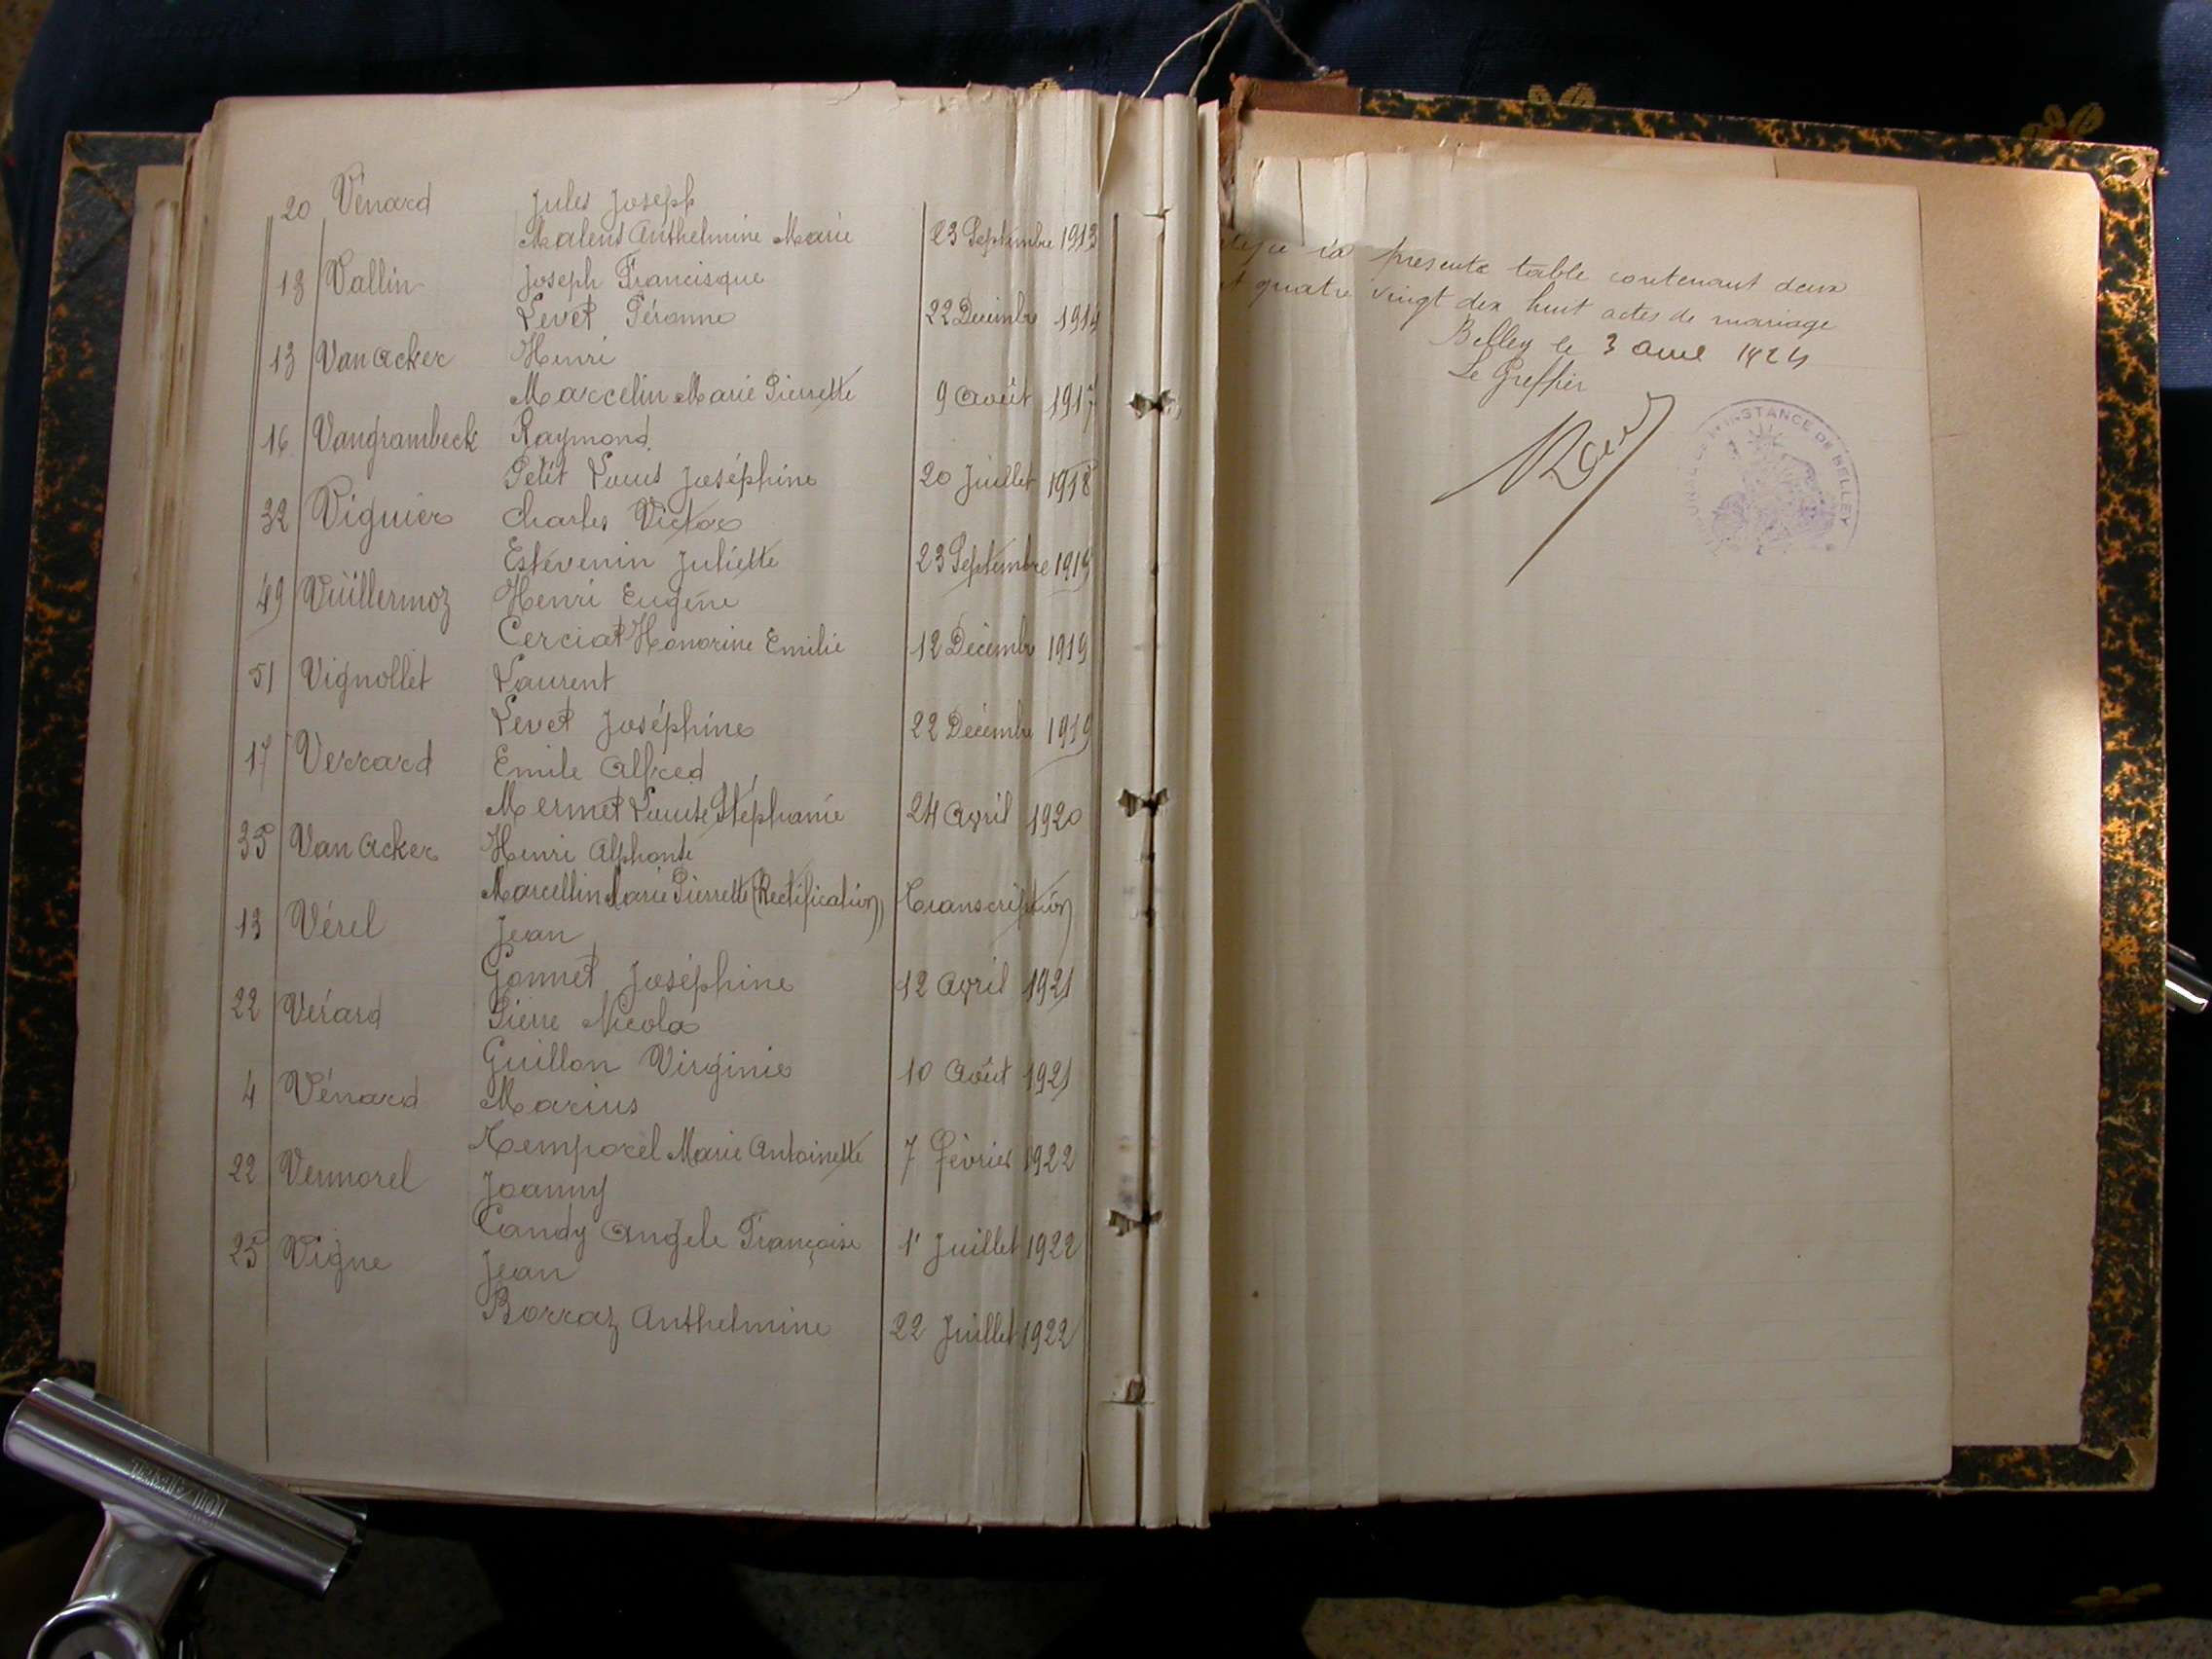 20 Vénard Jules Joseph
Malens Anthelmine Marie 23 Septembre 1913
13 Vallin Joseph Francisque
Levet Péronne 22 Décembre 1914
13 Van Acker Henri
Marcelin Marie Pierrette 9 Août 1917
16 Vangrambeck Raymond
Petit Louis Joséphine 20 Juillet 1918
32 Viguier Charles Victor
Estévenin Juliette 23 Septembre 1919
49 Vuillermoz Henri Eugène
Cerciat Honorine Emilie 12 Décembre 1919
51 Vignollet Laurent
Levet Joséphine 22 Décembre 1919
17 Verrard Emile Alfred
Mermet Louise Stéphanie 24 Avril 1920
35 Van Acker Henri Alphonse
Marcellin Marie Pierrette (Rectification) Transcription
13 Vérel Jean
Gonnet Joséphine 12 Avril 1921
22 Vérard Pierre Nicola
Guillon Virginie 10 Août 1921
4 Vénard Marius
Temporel Marie Antoinette 7 Février 1922
22 Vermorel Joanny
Candy Angele Françoise 1' Juillet 1922
25 Vigne Jean
Borraz Anthelmine 22 Juillet 1922
la presente table contenant deux
quatre vingt dix huit actes de mariage
Belley le 3 avril 1924
Le Greffier
INSTANCE DE BELLEY